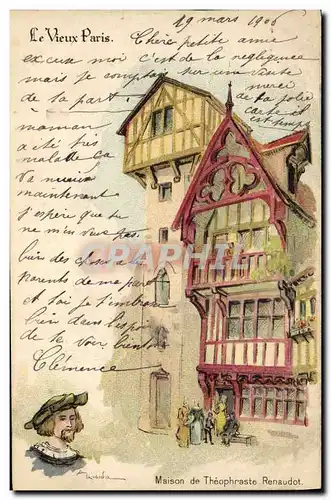 19 mars 1906
Le Vieux Paris.
Chère petite amie
excuse moi c'est de la négligence
mais je comptais sur une visite
de ta part. merci
de ta jolie
carte
maman
a été très
malade ça
va mieux
maintenant
j'espère que tu
ne m'en veux pas.
bien des choses à tes
parents de ma part
et toi je t'embrasse
bien dans l'espoir
de te voir bientôt
Clémence
Maison de Théophraste Renaudot.